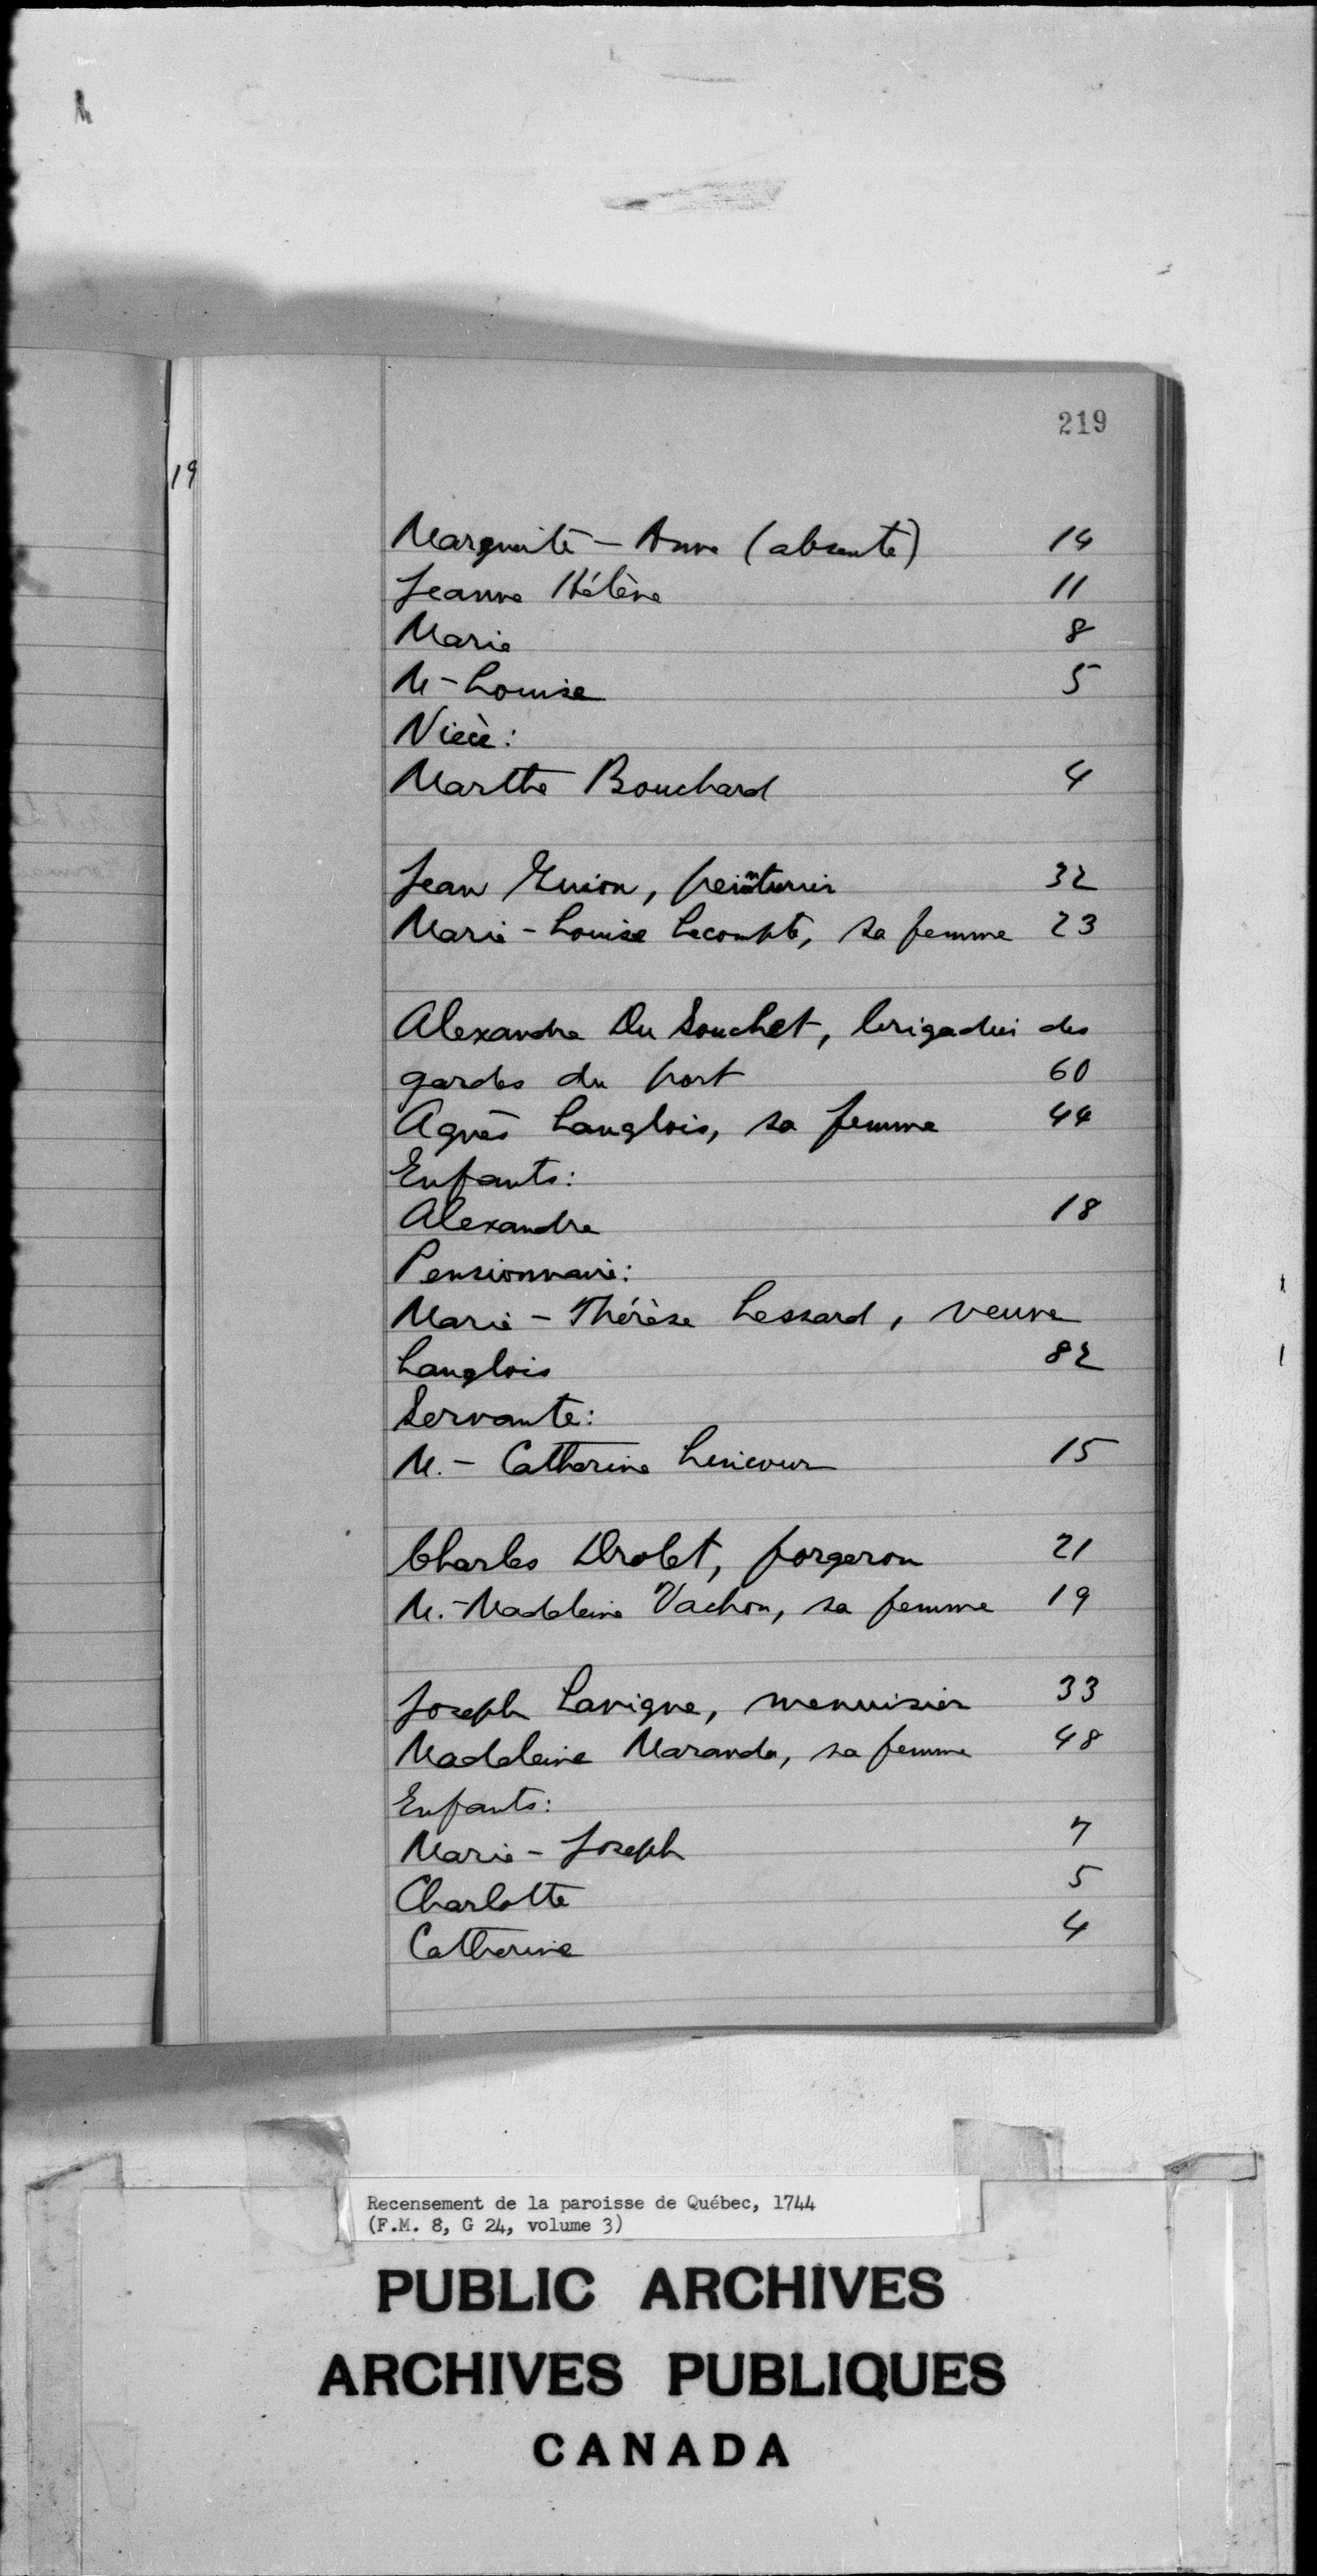 219
19
Marguerite - Anne (absente) 14
Jeanne Hélène 11
Marie 8
M-Louise 5
Nièce:
Marthe Bouchard 4
Jean Guion, 32
Marie-Louise Lecompte, sa femme 23
Alexandre Du Souchet, brigadier des
gardes du port 60
Agnès Langlois, sa femme 44
Enfants:
Alexandre 18
Pensionnaire:
Marie-Thérèse Lessard, veuve
Langlois 82
Servante:
M.- Catherine 15
Charles Drolet, forgeron 21
M.-Madeleine Vachon, sa femme 19
Joseph Lavigne, menuisier 33
Madeleine Maranda, sa femme 48
Enfants:
Marie-Joseph 7
Charlotte 5
Catherine 4
Recensement de la paroisse de Québec, 1744
(F.M. 8, G 24, volume 3)
PUBLIC ARCHIVES
ARCHIVES PUBLIQUES
CANADA